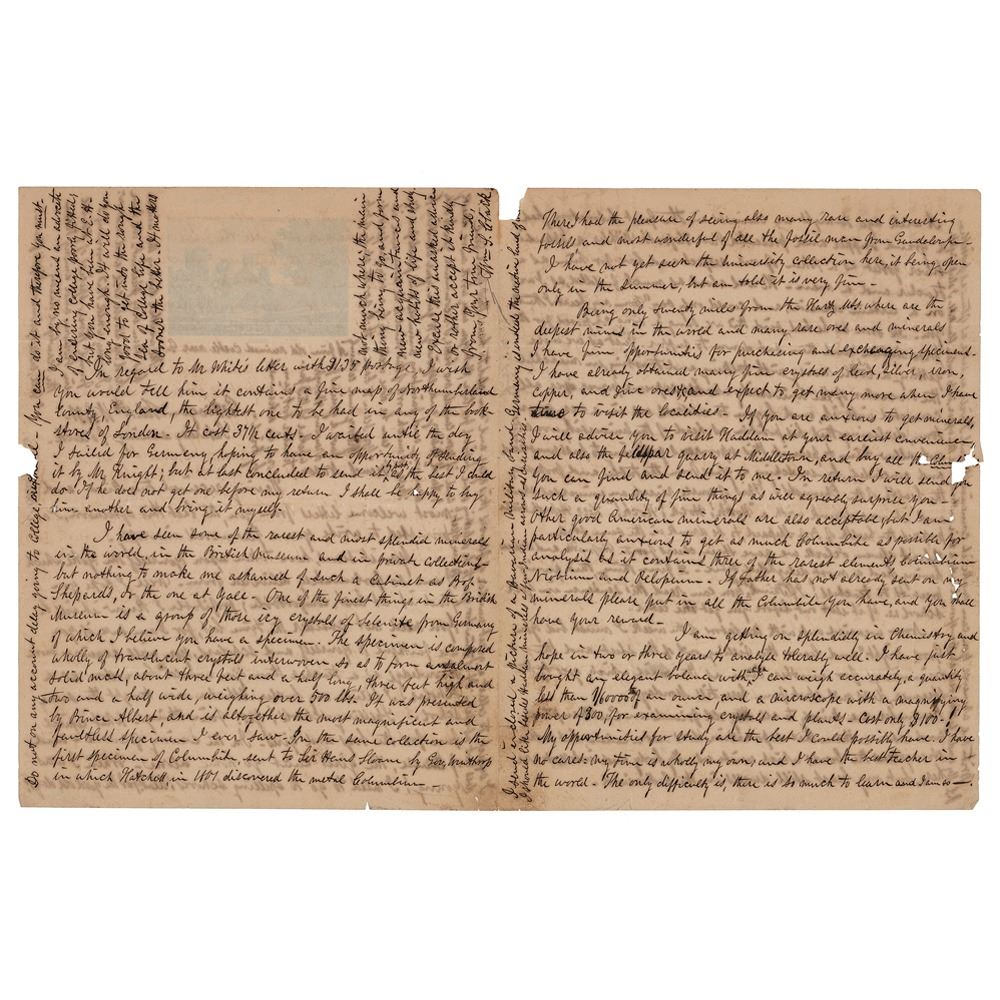 In regard to Mr White's letter with $1.35 postage, I wish
you would tell him it contains a fine map of Northumberland
County, England, the
stores of London. It cost 37½ cents. I waited until the day
I sailed for Germany, hoping to have an opportunity of sending
it by Mr Knight; but at last concluded to send it as the best I could
do. If he does not get one before my return I shall be happy to buy
him another and bring it myself.
I have seen some of the rarest and most splendid minerals
in the world, in the British Museum and in private collections
but nothing to make me ashamed of such a Cabinet as Prof
Shepards, or the one at Yale. One of the finest things in the British
Museum is a group of those icy crystals of Selenite from Germany
of which I believe you have a specimen. The specimen is composed
wholly of translucent crystals interwoven so as to form an almost
solid mass, about three feet and a half long, three feet high and
two and a half wide, weighing over 500 lbs. It was presented
by Prince Albert, and is altogether the most magnificent and
faultless specimen I ever saw. In the same collection is the
first specimen of Columbite, sent to Sir Hans Sloane by Gov. Winthrop
in which Hatchett in 1801 discovered the metal Columbium —
Do not on any account delay going to College, You can do it and therefore you must.
I am by no means an advocate
of entering college poorly fitted,
but you have been at E.H.
long enough. It will do you
good to get into the rough
sea of College life and the
sooner the better. It matters
not much where; the main
thing being to go, and form
new acquaintances and
new habits of life and study.
Excuse this unasked advice
or rather accept it kindly
from Your true friend,
Wm. S. Clark
There I had the pleasure of seeing also many rare and interesting
fossils and most wonderful of all the fossil man from Guadeloupe —
I have not yet seen the University collection here, it being open
only in the Summer, but am told it is very fine —
Being only twenty miles from the Hartz Mts. where are the
deepest mines in the world and many rare ores and minerals
I have fine opportunities for purchasing and exchanging specimens.
I have already obtained many fine crystals of lead, silver, iron,
Copper, and Zinc ores and expect to get many more when I have
time to visit the localities — If you are anxious to get minerals,
I will advise you to visit Haddam at your earliest convenience
and also the feldspar quarry at Middletown, and buy all
you can find and send it to me. In return I will send you
such a quantity of fine things as will agreeably surprise you —
Other good American minerals are also acceptable, but I am
particularly anxious to get as much Columbite as possible for
analysis as it contains three of the rarest elements Columbium
Niobium and Pelopium — If Father has not already sent on my
minerals please put in all the Columbite you have, and you shall
have your reward —
I am getting on splendidly in Chemistry and
hope in two or three years to analyze tolerably well. I have just
bought an elegant balance with which I can weigh accurately, a quantity
less than of an ounce and a microscope with a magnifying
power of 300, for examining crystals and plants — Cost only $100!
My opportunities for study are the best I could possibly have. I have
no cares: my time is wholly my own, and I have the best teacher in
the world — The only difficulty is, there is so much to learn and I am so —
I send enclosed a picture of a Hanoverian military band. Germany is indeed the nation